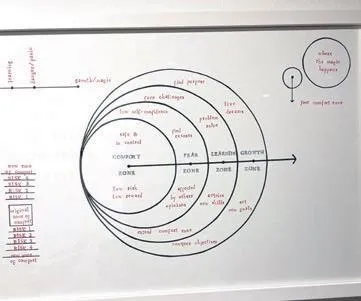 learning
danger/panic
growth/magic
where
the magic
happens
your comfort zone
find purpose
face challenges
live
dreams
low self-confidence
problem
solve
find
excuses
safe &
in control
COMFORT
FEAR
LEARNING
GROWTH
ZONE
ZONE
ZONE
ZONE
low risk
low reward
affected
by others'
opinions
acquire
new skills
set
new goals
extend comfort zone
conquer objectives
new zone
of comfort
RISK 4
RISK 3
RISK 2
RISK 1
original
zone of
comfort
RISK 1
RISK 2
RISK 3
RISK 4
new zone
of comfort